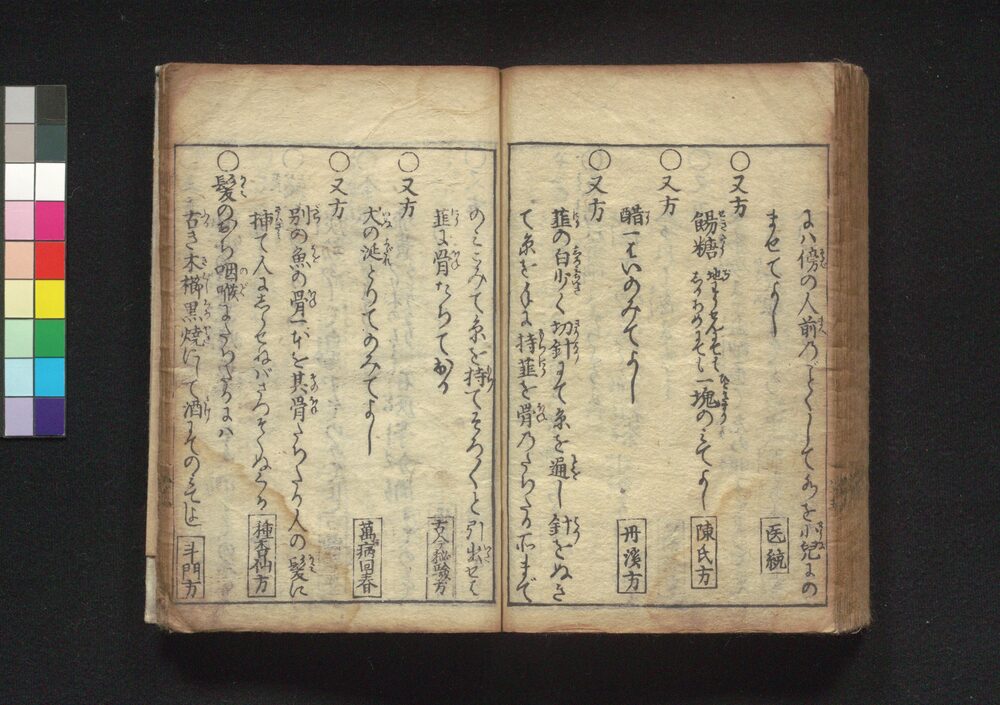 にハ傍の人前のごとくして水を小児にの
ませてよし 医統
○又方
餳糖 一塊のミてよし 陳氏方
○又方
醋一はいのみてよし 丹溪方
○又方
韮の白少く切針にて糸を通し針をぬき
て糸を手に持韮を骨のたちたる所まで
のミこみて糸を持てそろ〱と引出せは
韮に骨たちて出る 古今秘驗方
○又方
犬の涎とりてのみてよし 萬病回春
○又方
別の魚の骨一本を其骨たちたる人の髪に
挿て人にしらせねバさつそくぬくる 種杏仙方
○髪のから咽喉にたちたるにハ
古き木櫛黒燒にして酒にてのミてよし 斗門方